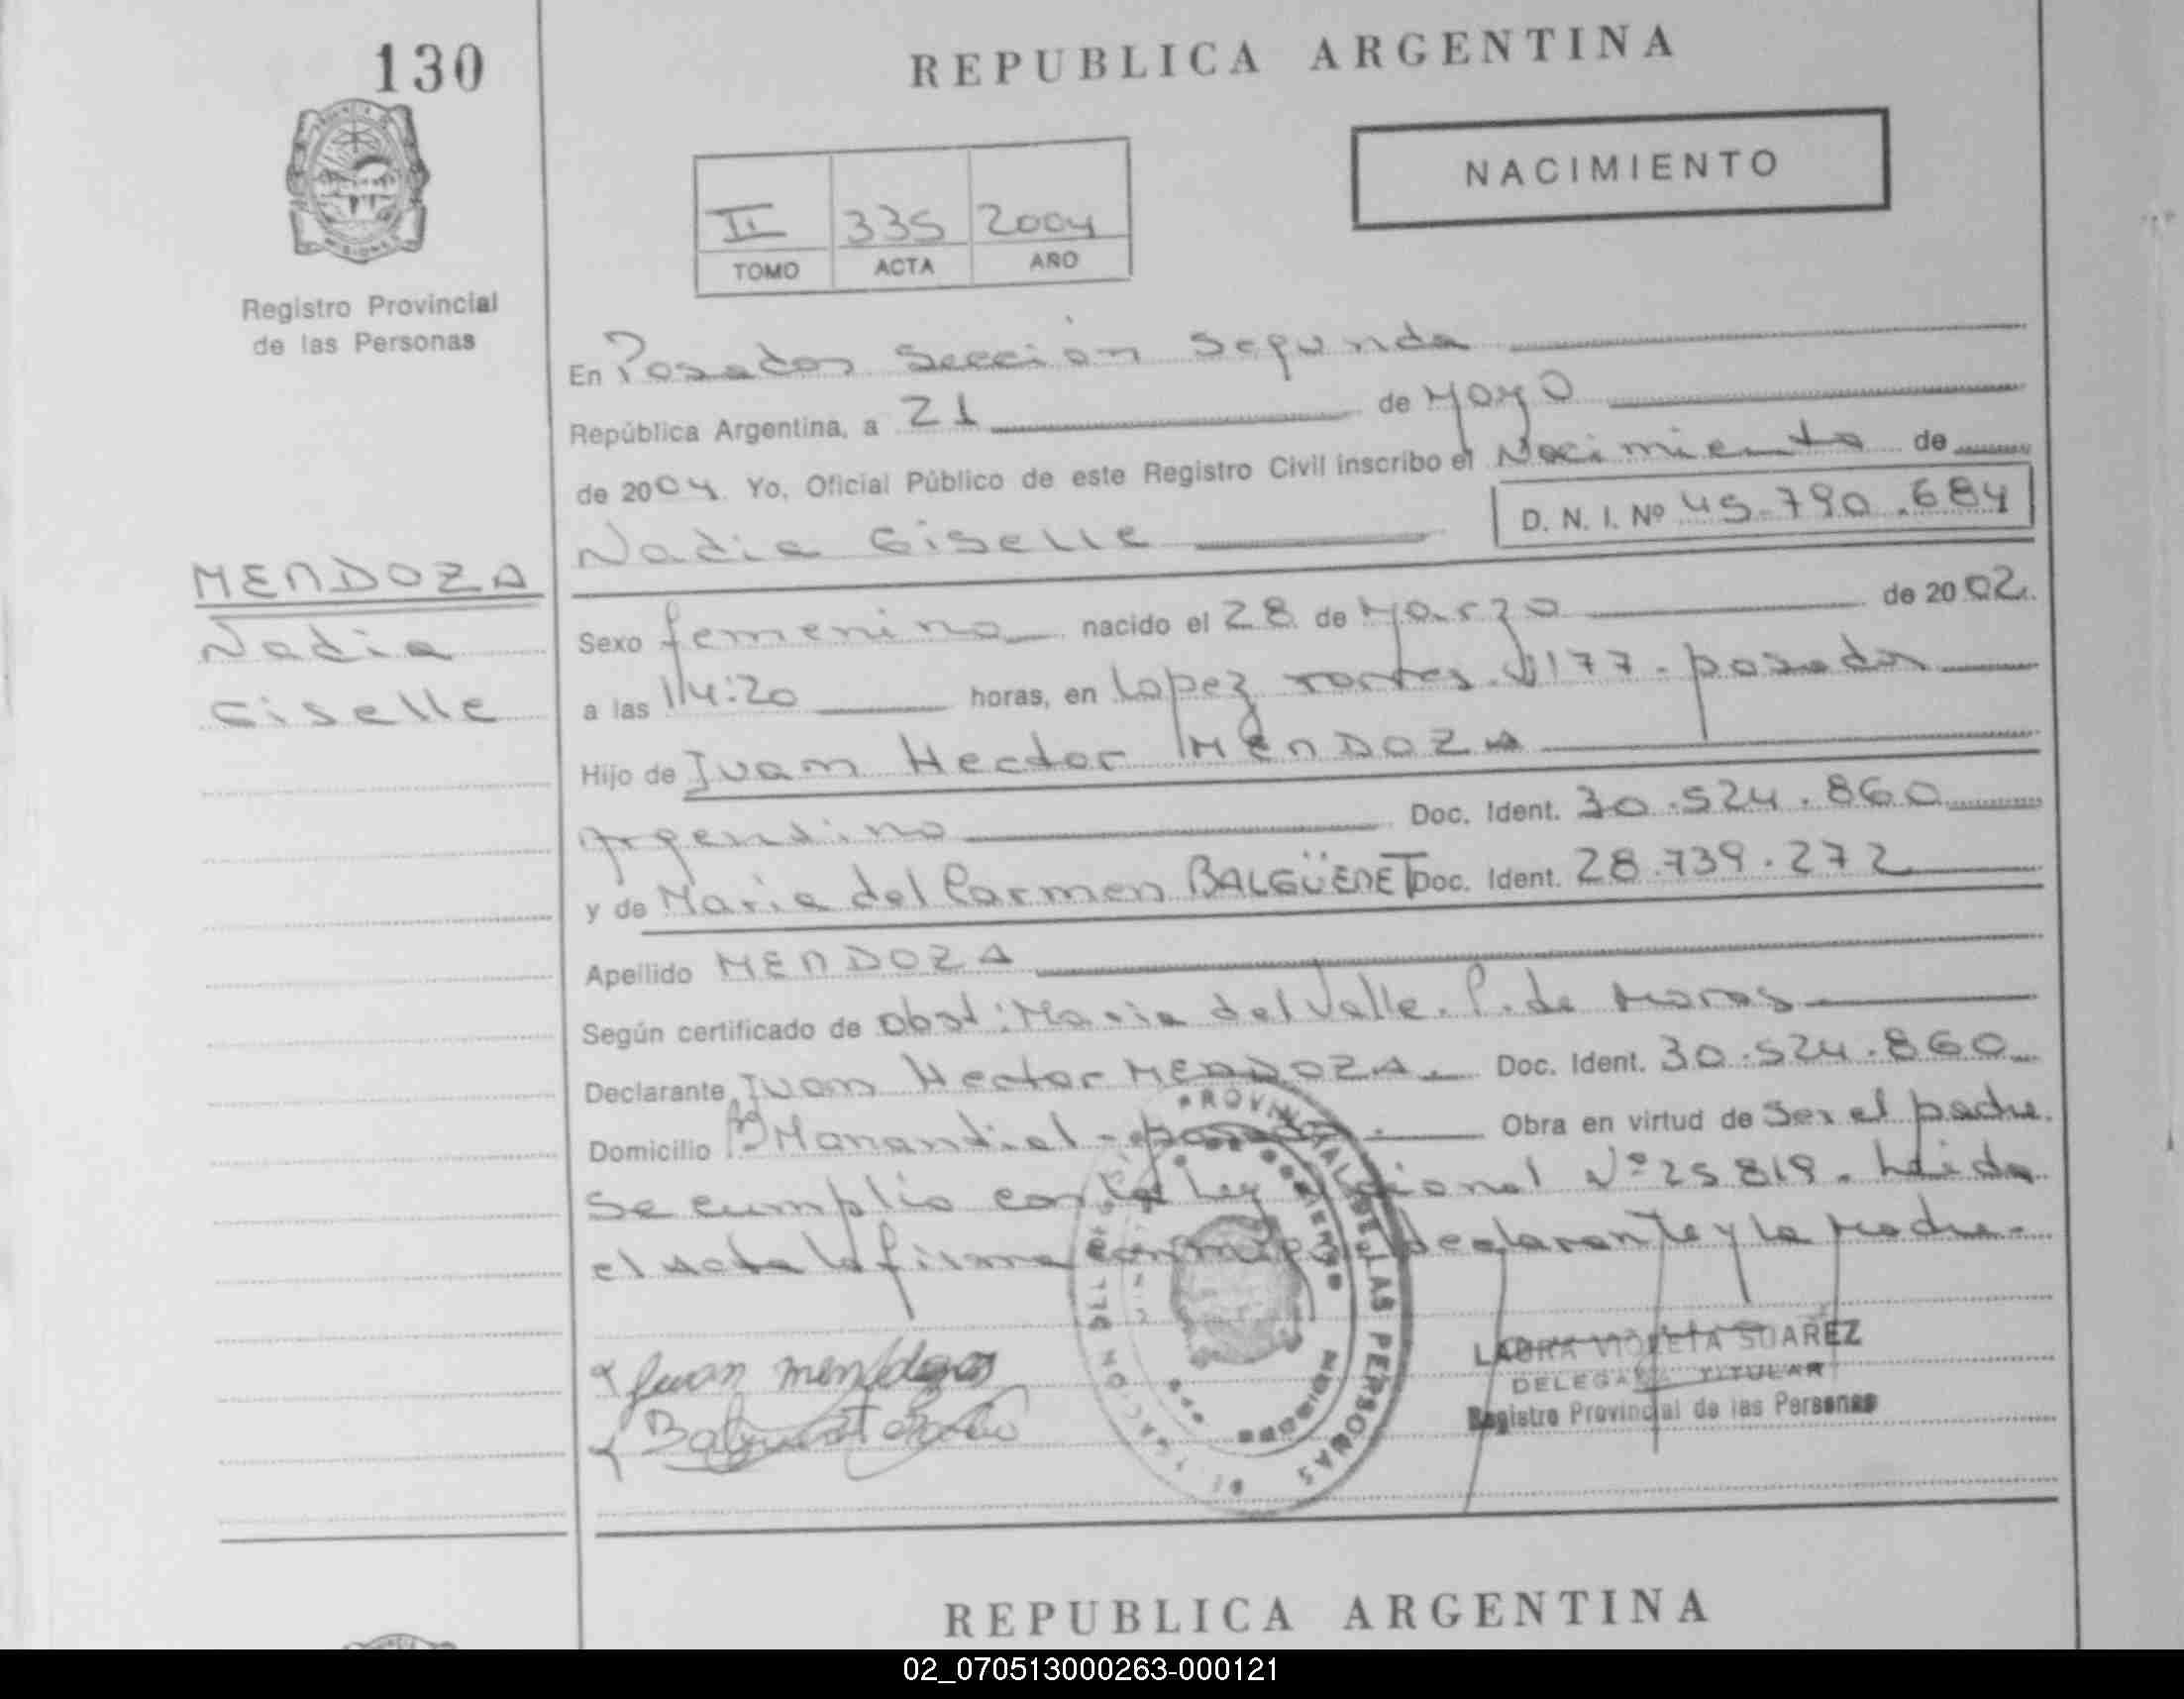 130
REPUBLICA ARGENTINA
NACIMIENTO
II 335 2004
TOMO ACTA AÑO
Registro Provincial
de las Personas
En Posadas Sección Segunda
República Argentina, a 21 de Mayo
de 2004. Yo, Oficial Público de este Registro Civil inscribo el Nacimiento de
Nadia Giselle D. N. I. Nº 45.790.684
MENDOZA
Nadia
Giselle
Sexo femenino nacido el 28 de Marzo de 2002.
a las 14:20 horas, en Lopez Torres 1177 - posadas
Hijo de Juan Hector MENDOZA
Argentino Doc. Ident. 30.524.860
y de Maria del Carmen BALGÜENET Doc. Ident. 28.739.272
Apellido MENDOZA
Según certificado de Obst: Maria del Valle. P. de
Declarante Juan Hector MENDOZA. Doc. Ident. 30.524.860
Domicilio Bº Manantial - posadas. Obra en virtud de Ser el padre.
Se cumplio con la Ley Nacional Nº 25819. Leida
el Acta la firma conmigo el declarante y la Madre.
Juan mendoza
LAURA VIOLETA SUAREZ
DELEGADA TITULAR
Registro Provincial de las Personas
PROVINCIAL DE LAS PERSONAS
REPUBLICA ARGENTINA
02_070513000263-000121